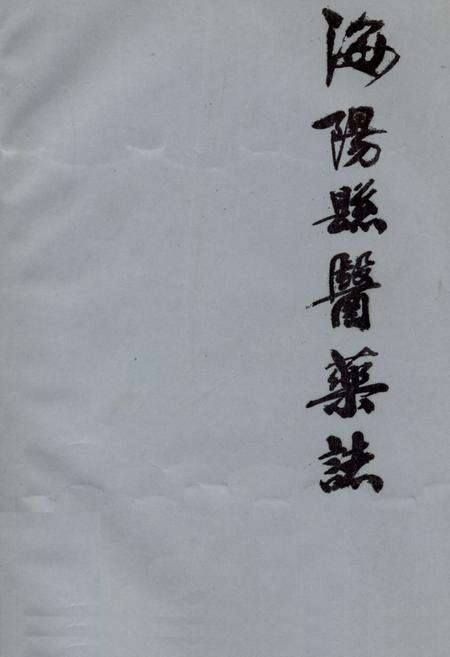 海陽縣醫藥誌